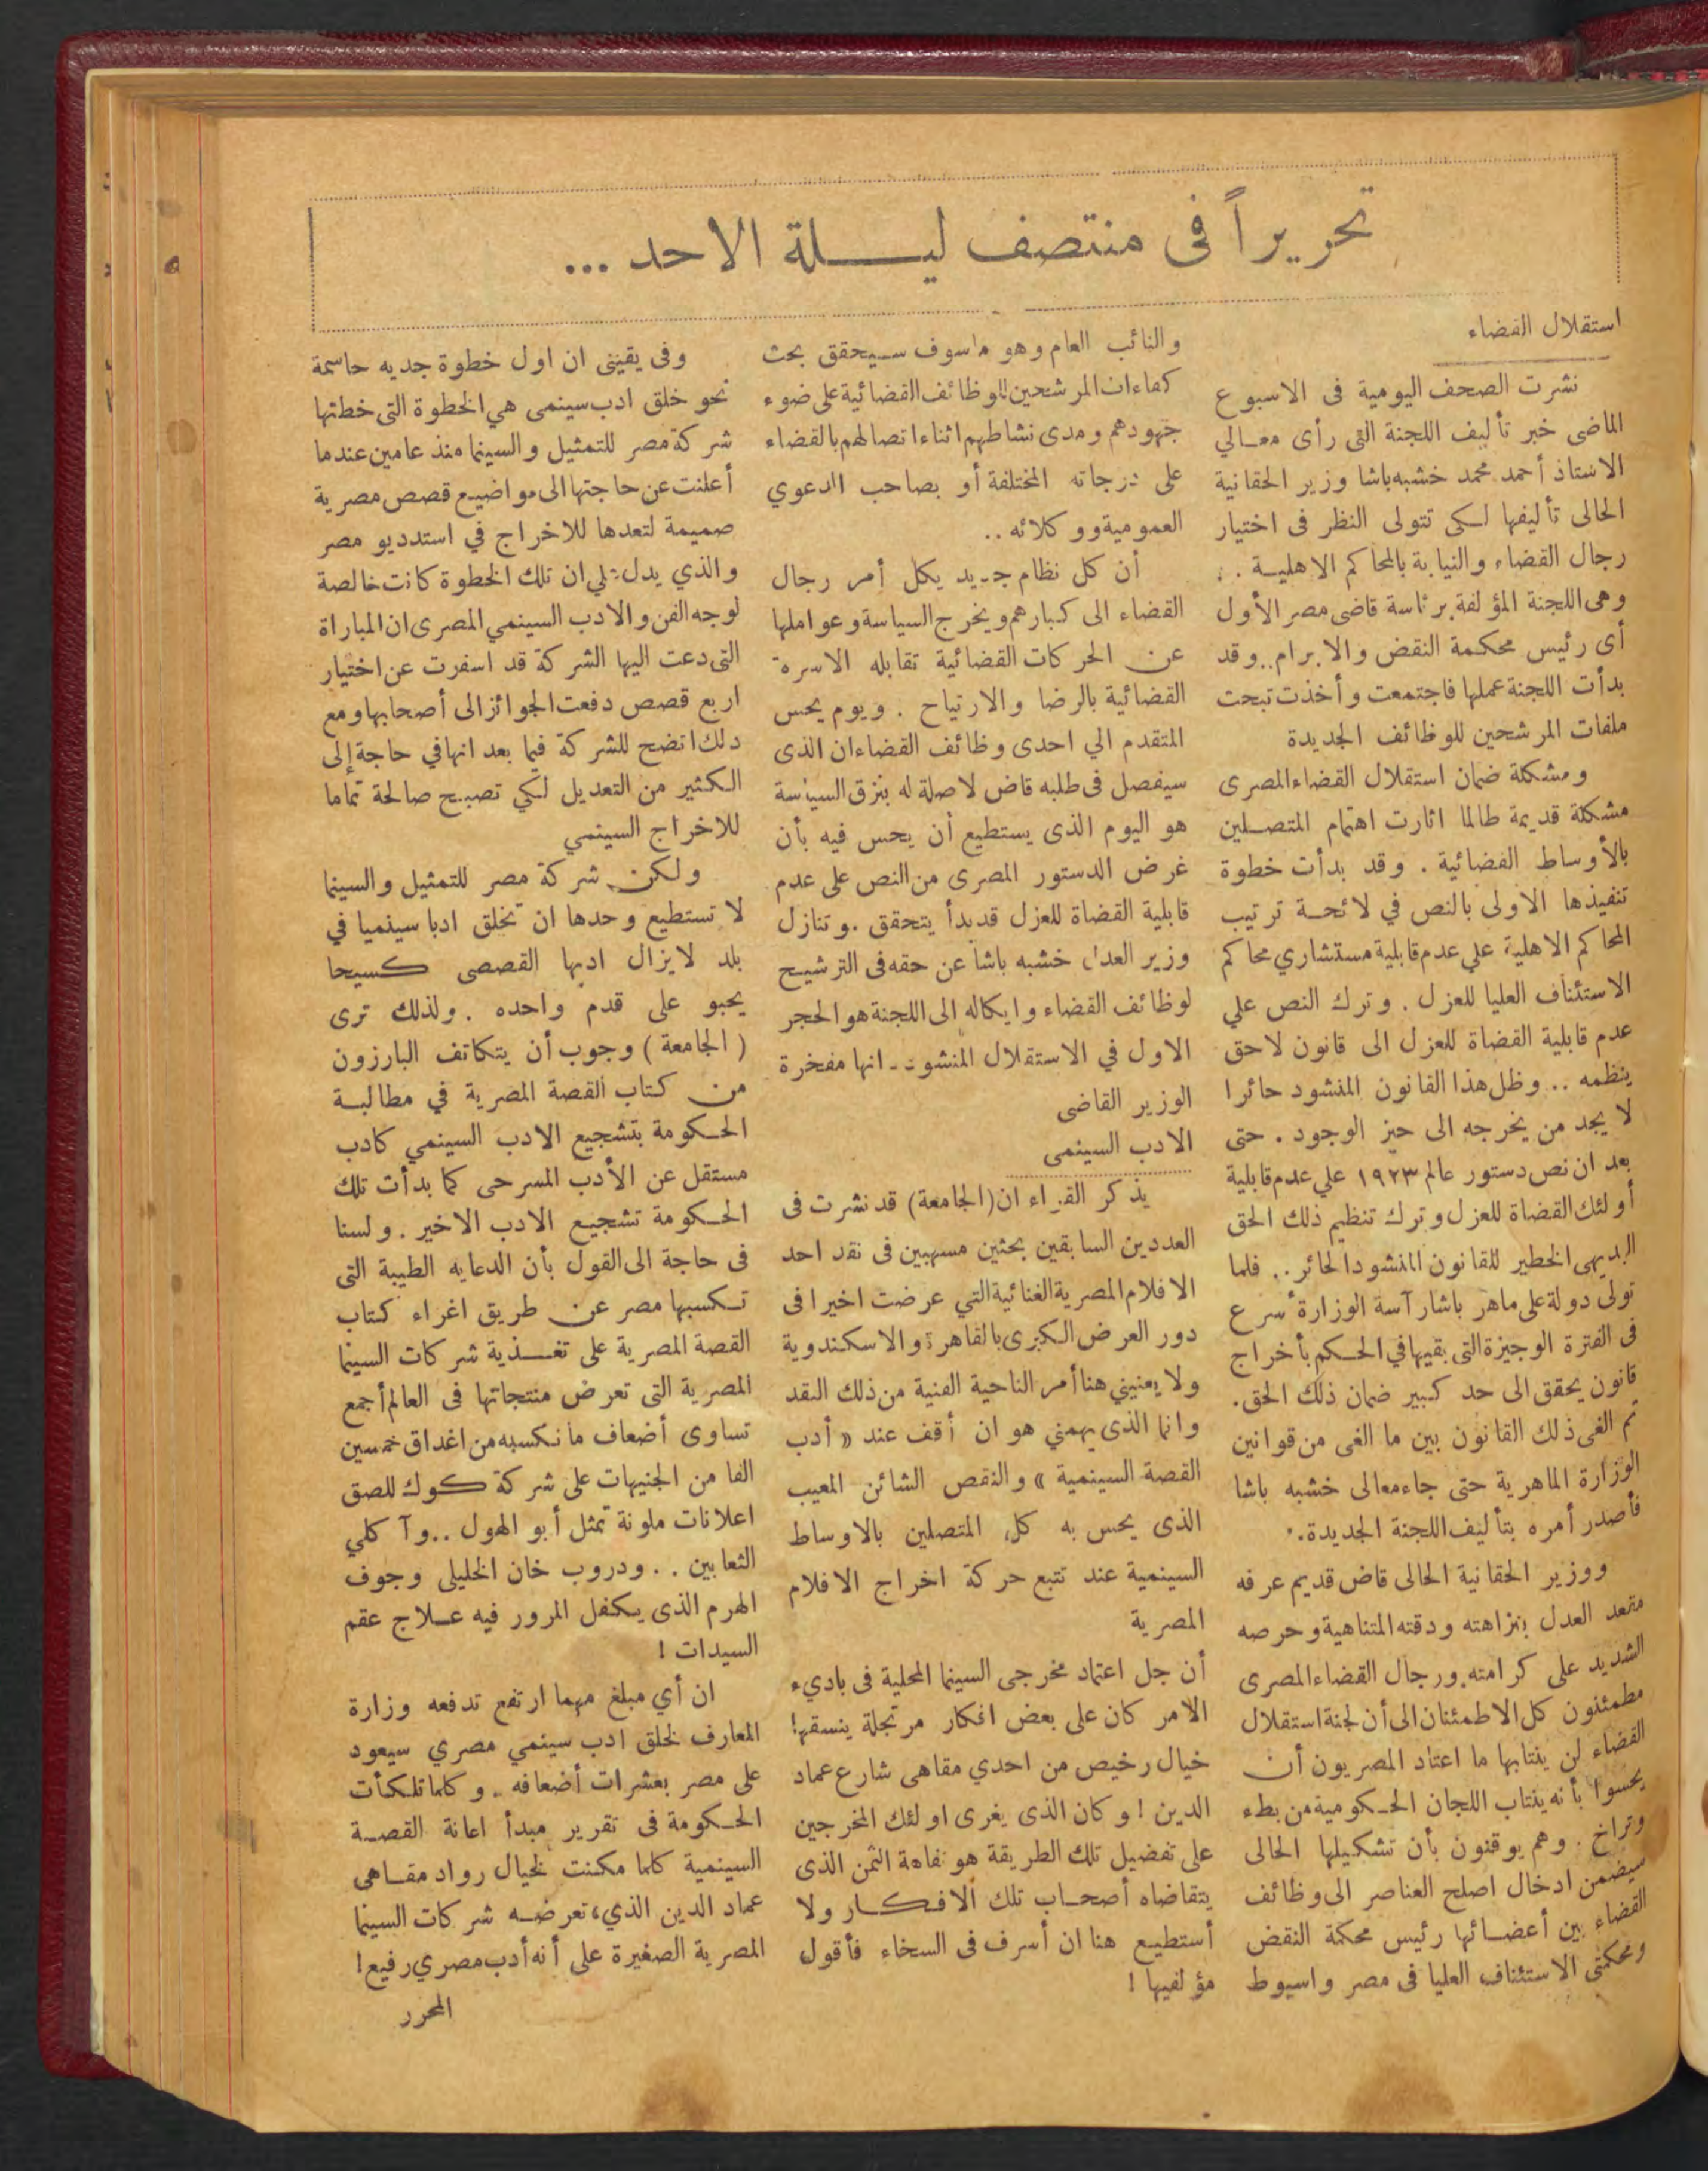 تحريراً فى منتصف ليلة الاحد ...
استقلال القضاء
نشرت الصحف اليومية فى الاسبوع
الماضى خبر تأليف اللجنة التى رأى معالي
الاستاذ أحمد محمد خشبه باشا وزير الحقانية
الحالى تأليفها لكى تتولى النظر فى اختيار
رجال القضاء والنيابة بالمحاكم الاهلية . .
وهى اللجنة المؤلفة برئاسة قاضى مصر الأول
أى رئيس محكمة النقض والابرام .. وقد
بدأت اللجنة عملها فاجتمعت وأخذت تبحث
ملفات المرشحين للوظائف الجديدة
ومشكلة ضمان استقلال القضاء المصرى
مشكلة قديمة طالما اثارت اهتمام المتصلين
بالأوساط القضائية . وقد بدأت خطوة
تنفيذها الاولى بالنص في لائحة ترتيب
المحاكم الاهلية علي عدم قابلية مستشاري محاكم
الاستئناف العليا للعزل . وترك النص علي
عدم قابلية القضاة للعزل الى قانون لاحق
ينظمه .. وظل هذا القانون المنشود حائرا
لا يجد من يخرجه الى حيز الوجود . حتى
بعد ان نص دستور عالم ١٩٢٣ علي عدم قابلية
أولئك القضاة للعزل وترك تنظيم ذلك الحق
البديهى الخطير للقانون المنشود الحائر .. فلما
تولى دولة على ماهر باشا رآسة الوزارة أسرع
فى الفترة الوجيزة التى بقيها في الحكم بأخراج
قانون يحقق الى حد كبير ضمان ذلك الحق .
ثم الغى ذلك القانون بين ما الغى من قوانين
الوزارة الماهرية حتى جاء معالى خشبه باشا
فأصدر أمره بتأليف اللجنة الجديدة ..
ووزير الحقانية الحالى قاض قديم عرفه
مقعد العدل بنزاهته ودقته المتناهية وحرصه
الشديد على كرامته . ورجال القضاء المصرى
مطمئنون كل الاطمئنان الى أن لجنة استقلال
القضاء لن ينتابها ما اعتاد المصريون أن
يحسوا بأنه ينتاب اللجان الحكومية من بطء
وتراخ . وهم يوقنون بأن تشكيلها الحالى
سيضمن ادخال اصلح العناصر الى وظائف
القضاء بين أعضائها رئيس محكمة النقض
ومحكمتى الاستئناف العليا فى مصر واسيوط
والنائب العام وهو ما سوف سيحقق بحث
كفاءات المرشحين للوظائف القضائية على ضوء
جهودهم ومدى نشاطهم اثناء اتصالهم بالقضاء
على درجاته المختلفة أو بصاحب الدعوي
العمومية ووكلائه ..
أن كل نظام جديد يكل أمر رجال
القضاء الى كبارهم ويخرج السياسة وعواملها
عن الحركات القضائية تقابله الاسرة
القضائية بالرضا والارتياح . ويوم يحس
المتقدم الي احدى وظائف القضاء ان الذى
سيفصل فى طلبه قاض لا صلة له بنزق السياسة
هو اليوم الذى يستطيع أن يحس فيه بأن
غرض الدستور المصرى من النص على عدم
قابلية القضاة للعزل قد بدأ يتحقق . وتنازل
وزير العدل خشبه باشا عن حقه فى الترشيح
لوظائف القضاء وايكاله الى اللجنة هو الحجر
الاول في الاستقلال المنشود .. انها مفخرة
الوزير القاضى
الادب السينمى
يذكر القراء ان (الجامعة) قد نشرت فى
العددين السابقين بحثين مسهبين فى نقد احد
الافلام المصرية الغنائية التي عرضت اخيرا فى
دور العرض الكبرى بالقاهرة والاسكندوية
ولا يعنيني هنا أمر الناحية الفنية من ذلك النقد
وانما الذى يهمني هو ان أقف عند « أدب
القصة السينمية » والنقص الشائن المعيب
الذى يحس به كل المتصلين بالاوساط
السينمية عند تتبع حركة اخراج الافلام
المصرية
أن جل اعتماد مخرجى السينما المحلية فى باديء
الامر كان على بعض افكار مرتجلة ينسقها !
خيال رخيص من احدي مقاهى شارع عماد
الدين ! وكان الذى يغرى اولئك المخرجين
على تفضيل تلك الطريقة هو تفاهة الثمن الذى
يتقاضاه أصحاب تلك الافكار ولا
أستطيع هنا ان أسرف فى السخاء فأقول
مؤلفيها !
وفى يقينى ان اول خطوة جديه حاسمة
نحو خلق ادب سينمى هي الخطوة التى خطتها
شركة مصر للتمثيل والسينما منذ عامين عندما
أعلنت عن حاجتها الى مواضيع قصص مصرية
صميمة لتعدها للاخراج في استديو مصر
والذي يدل علي ان تلك الخطوة كانت خالصة
لوجه الفن والادب السينمي المصرى ان المباراة
التى دعت اليها الشركة قد اسفرت عن اختيار
اربع قصص دفعت الجوائز الى أصحابها ومع
دلك اتضح للشركة فيما بعد انها في حاجة إلى
الكثير من التعديل لكي تصبح صالحة تماما
للاخراج السينمي
ولكن شركة مصر للتمثيل والسينما
لا تستطيع وحدها ان تخلق ادبا سينميا في
بلد لا يزال ادبها القصصى كسيحا
يحبو على قدم واحده . ولذلك ترى
( الجامعة ) وجوب أن يتكاتف البارزون
من كتاب القصة المصرية في مطالبة
الحكومة بتشجيع الادب السينمي كادب
مستقل عن الأدب المسرحى كما بدأت تلك
الحكومة تشجيع الادب الاخير . ولسنا
فى حاجة الى القول بأن الدعايه الطيبة التى
تكسبها مصر عن طريق اغراء كتاب
القصة المصرية على تغذية شركات السينما
المصرية التى تعرض منتجاتها فى العالم أجمع
تساوى أضعاف ما نكسبه من اغداق خمسين
الفا من الجنيهات على شركة كوك للصق
اعلانات ملونة تمثل أبو الهول .. وآكلي
الثعابين . . ودروب خان الخليلى وجوف
الهرم الذى يكفل المرور فيه علاج عقم
السيدات !
ان أي مبلغ مهما ارتفع تدفعه وزارة
المعارف لخلق ادب سينمي مصري سيعود
على مصر بعشرات أضعافه . وكلما تلكأت
الحكومة فى تقرير مبدأ اعانة القصة
السينمية كلما مكنت لخيال رواد مقاهى
عماد الدين الذي، تعرضه شركات السينما
المصرية الصغيرة على أنه أدب مصري رفيع !
المحرر